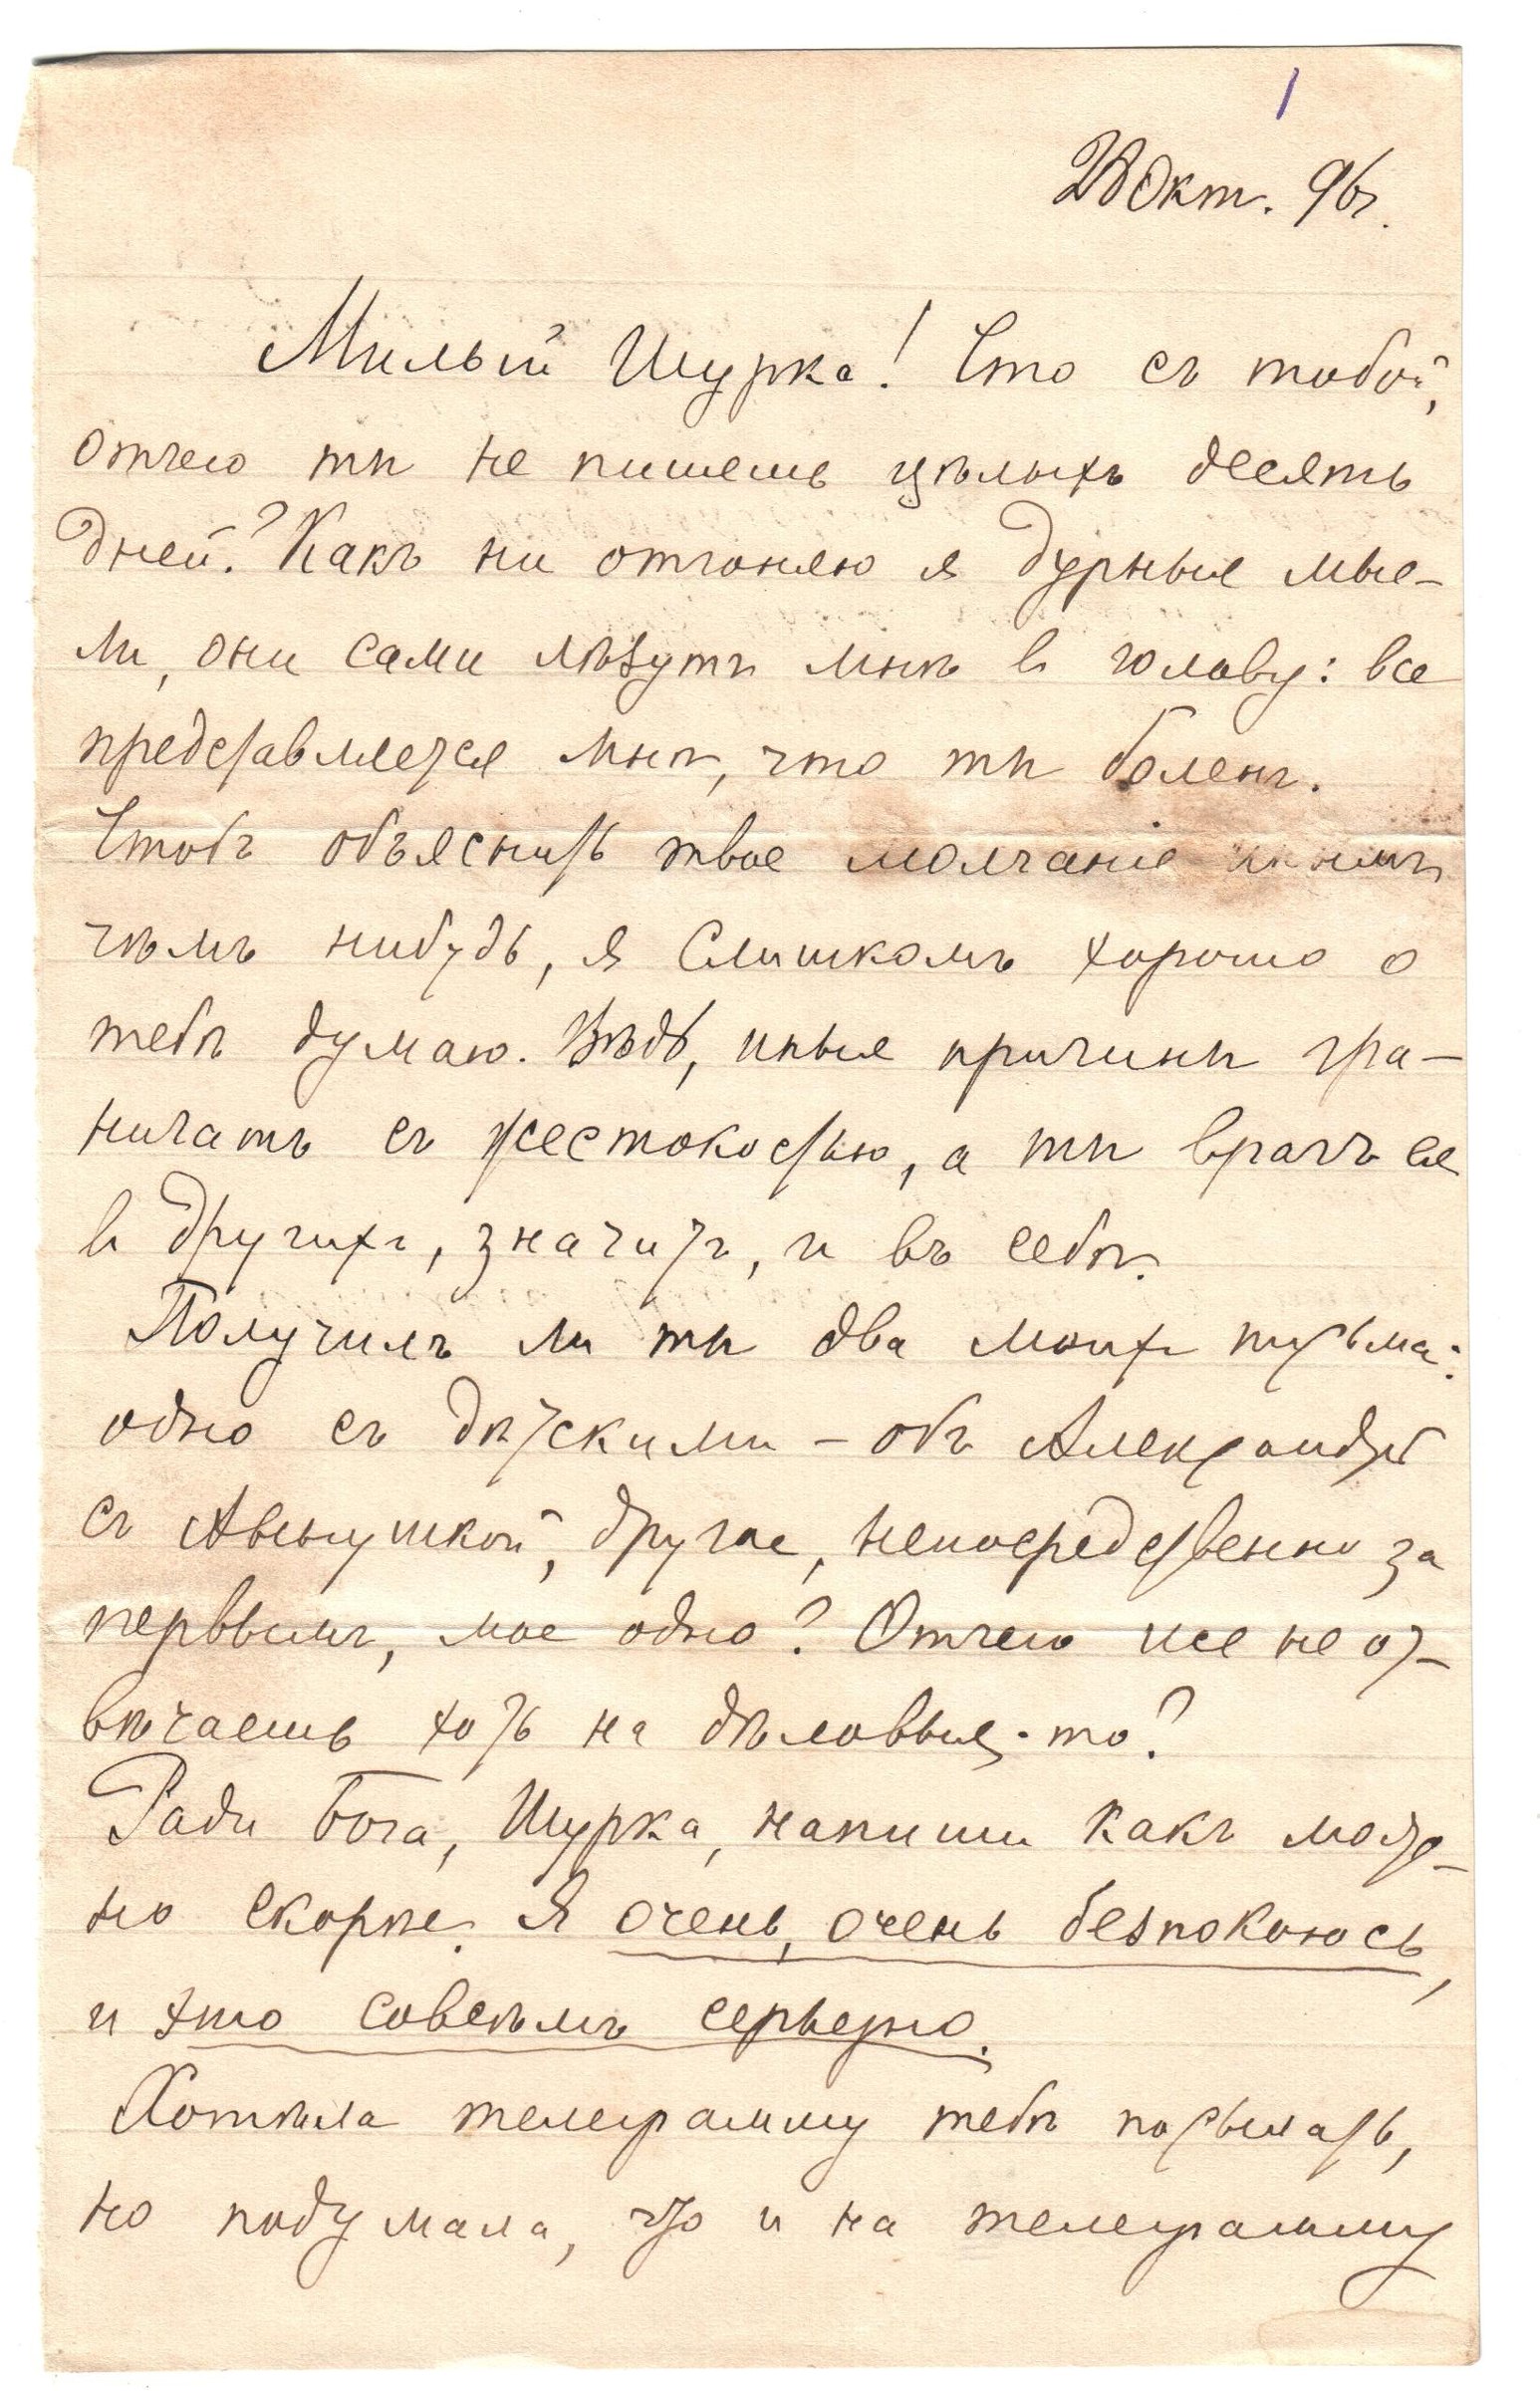 1
28 Окт. 96 г.
Милый Шурка! Что съ тобой,
отчего ты не пишешь цѣлыхъ десять
дней? Какъ ни отгоняю я дурные мыс-
ли, они сами лѣзутъ мнѣ в голову: все
представляется мнѣ, что ты боленъ.
Чтобъ объяснить твое молчаніе инымъ
чѣмъ нибудь, я слишкомъ хорошо о
тебѣ думаю. Вѣдь, иные причины гра-
ничатъ съ жестокостью, а ты врагъ ея
в другихъ, значитъ, и въ себѣ.
Получилъ ли ты два моихъ письма:
одно съ дѣтскими – объ Александрѣ
съ Авенушкой, другое, непосредственно за
перввымъ, мое одно? Отчего же не от-
вѣчаешь хоть на дѣловвые-то?
Ради Бога, Шурка, напиши какъ мож-
но скорѣе. Я очень, очень безпокоюсь,
и это совсѣмъ серьезно.
Хотѣла телеграмму тебѣ посылать,
но подумала, что и на телеграмму